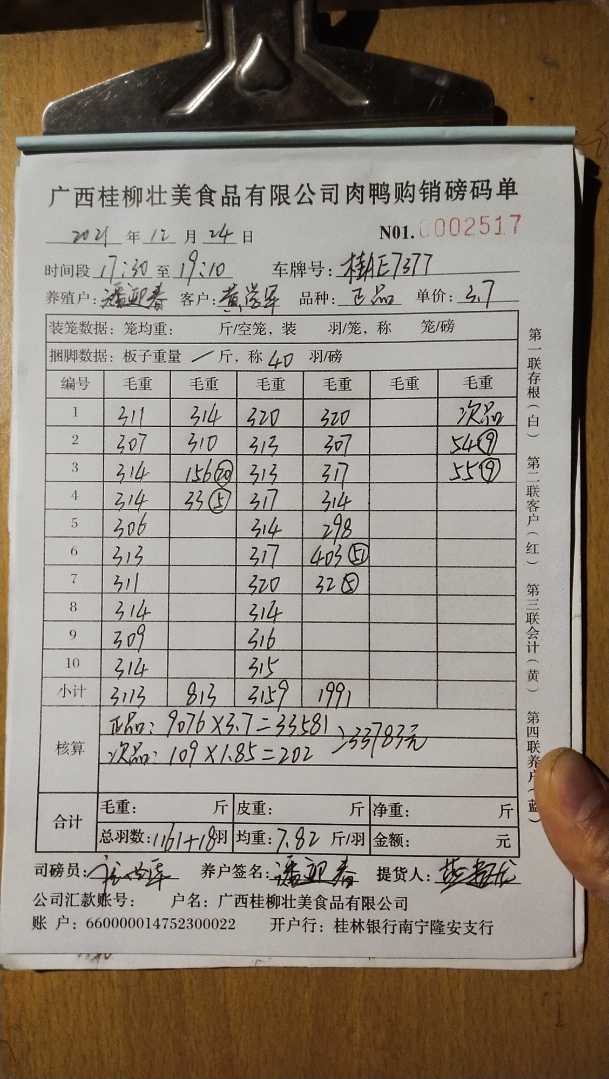 广西桂柳壮美食品有限公司肉鸭购销磅码单
2021 年 12 月 24 日 N01.0002517
时间段 17:30 至 19:10 车牌号: 桂AE7377
养殖户: 潘迎春 客户: 黄 品种: 正品 单价: 3.7
装笼数据: 笼均重: 斤/空笼, 装 羽/笼, 称 笼/磅
捆脚数据: 板子重量 / 斤, 称 40 羽/磅
编号 毛重 毛重 毛重 毛重 毛重 毛重
1 311 314 320 320 次品
2 307 310 313 307 54⑨
3 314 156⑳ 313 317 55⑨
4 314 33⑤ 317 314
5 306 314 298
6 313 317 403(51)
7 311 320 32⑤
8 314 314
9 309 316
10 314 315
小计 3113 813 3159 1991
核算
正品: 9076×3.7=33581
次品: 109×1.85=202
33783元
合计
毛重: 斤 皮重: 斤 净重: 斤
总羽数: 1161+18羽 均重: 7.82 斤/羽 金额: 元
司磅员: 养户签名: 潘迎春 提货人:
公司汇款账号: 户名: 广西桂柳壮美食品有限公司
账 户: 660000014752300022 开户行: 桂林银行南宁隆安支行
第一联存根(白) 第二联客户(红) 第三联会计(黄) 第四联养户(蓝)